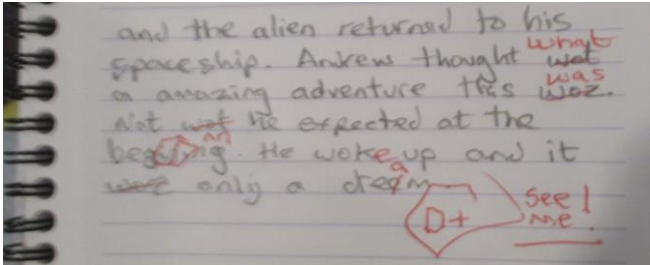 and the alien returned to his
what
spaceship. Ankrew thought wot
was
a amazing adventure this woz.
Not wot he expected at the
nn
beg ing. He woke up and it
a
only a dre m
D+
see
me!